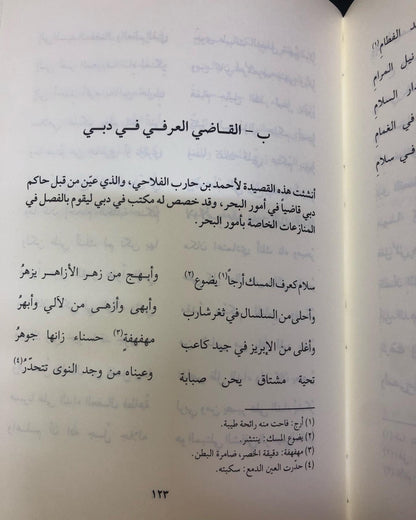 د الفطام(١)
نيل المرام
دار السلام
في الغمام
في سلام
ب – القاضي العرفي في دبي
أنشئت هذه القصيدة لأحمد بن حارب الفلاحي، والذي عيّن من قبل حاكم
دبي قاضياً في أمور البحر، وقد خصص له مكتب في دبي ليقوم بالفصل في
المنازعات الخاصة بأمور البحر.
سلام كعرف المسك أرجاً(١) يضوع(٢) وأبهج من زهر الأزاهر يزهرُ
وأحلى من السلسال في ثغر شارب وأبهى وأزهى من لآلي وأبهرُ
وأغلى من الإبريز في جيد كاعب مهفهفةٍ(٣) حسناء زانها جوهرُ
تحية مشتاق يحن صبابة وعيناه من وجد النوى تتحدّرُ(٤)
(١) أرج: فاحت منه رائحة طيبة.
(٢) يضوع المسك: ينتشر.
(٣) مهفهفة: دقيقة الخصر، ضامرة البطن.
(٤) حدّرت العين الدمع: سكبته.
١٢٣